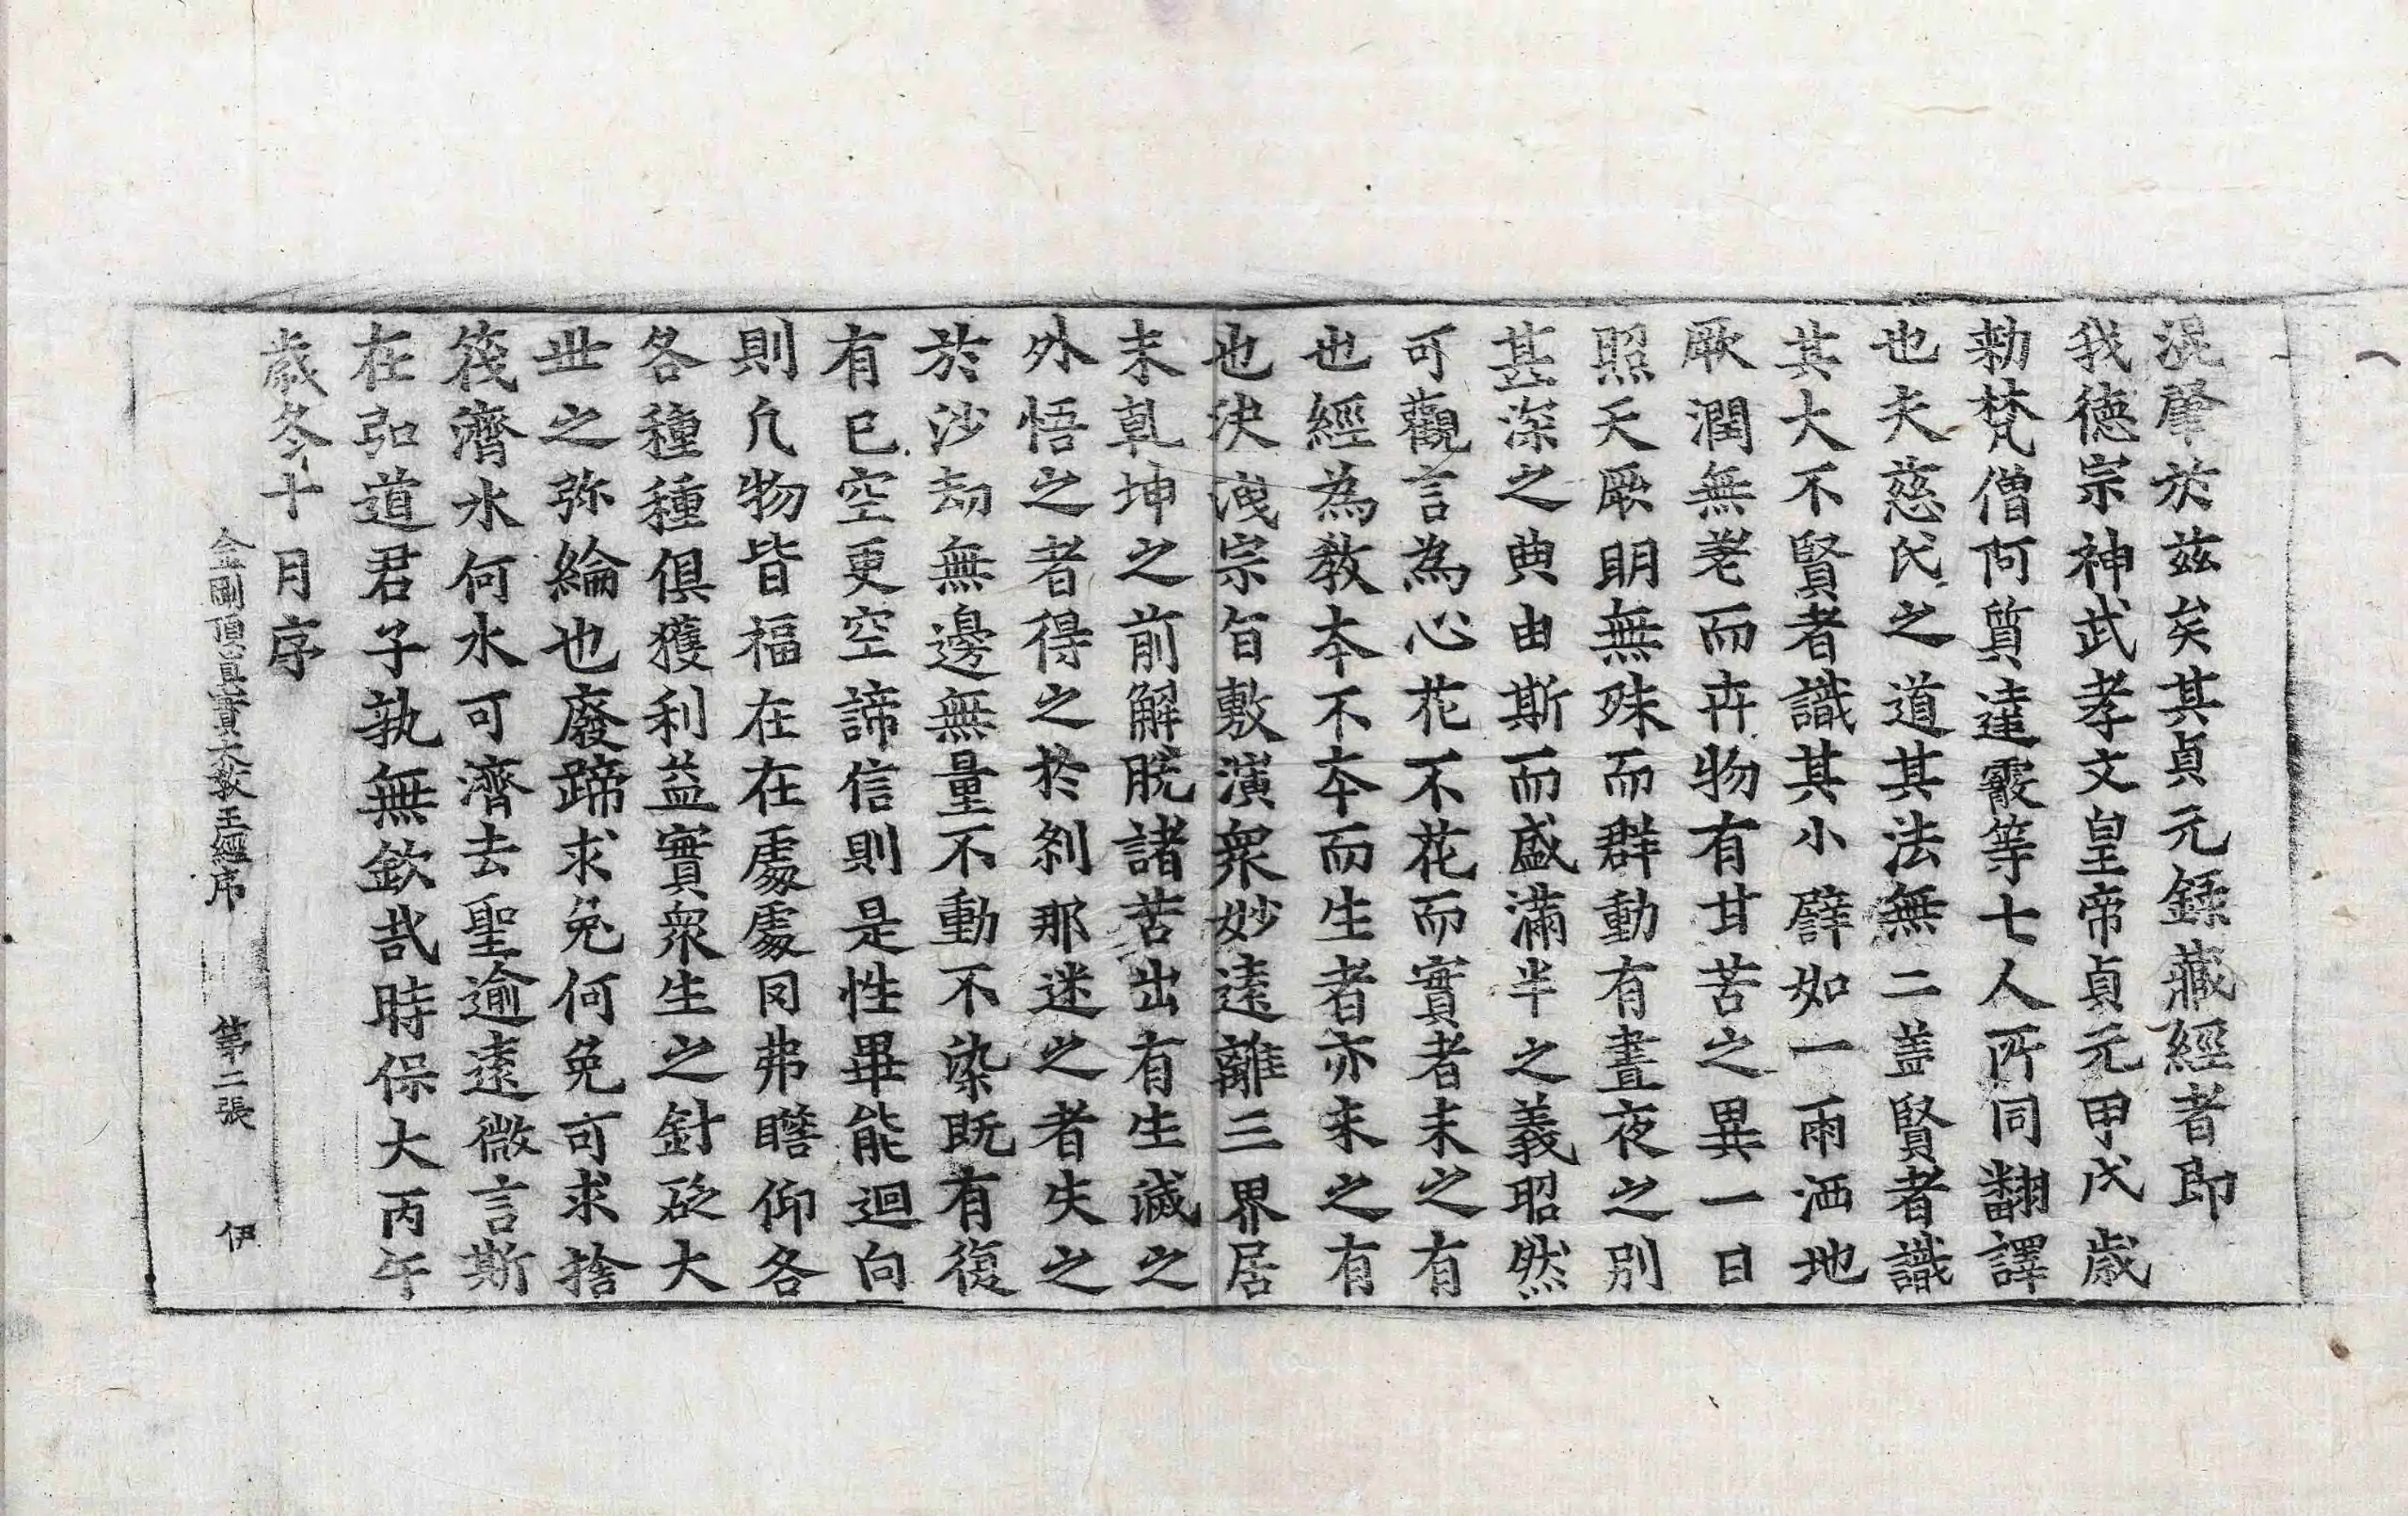 混肇於茲矣其貞元録藏經者即
我德宗神武孝文皇帝貞元甲戌歳
勑梵僧何質達霰等七人所同翻譯
也夫慈氏之道其法無二盖賢者識
其大不賢者識其小譬如一雨洒地
厥潤無差而卉物有甘苦之異一日
照天厥明無殊而群動有晝夜之別
甚深之典由斯而盛滿半之義昭然
可觀言為心花不花而實者未之有
也經為教本不本而生者亦未之有
也決洩宗旨敷演衆妙遠離三界居
未乹坤之前解脫諸苦出有生滅之
外悟之者得之於刹那迷之者失之
於沙劫無邊無量不動不染既有復
有已空更空諦信則是性畢能迴向
則凢物皆福在在處處罔弗瞻仰各
各種種俱獲利益實衆生之針砭大
丗之弥綸也廢蹄求兔何兔可求捨
筏濟水何水可濟去聖逾遠微言斯
在弘道君子孰無欽哉時保大丙午
歳冬十月序
金剛頂真實大教王經序 第二張 伊